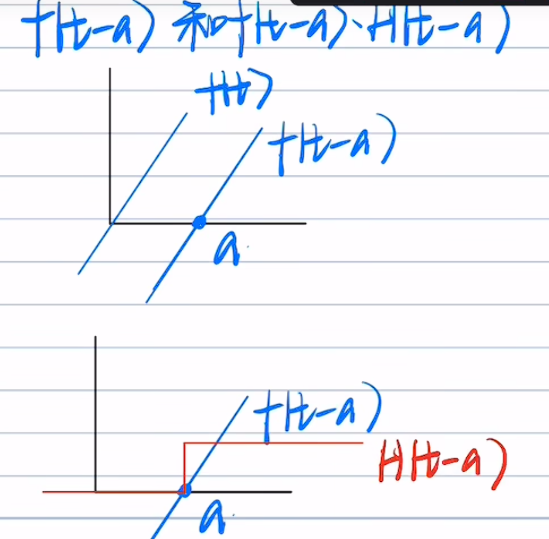 f(t-a) 和 f(t-a)·H(t-a)
f(t)
f(t-a)
a
f(t-a)
H(t-a)
a